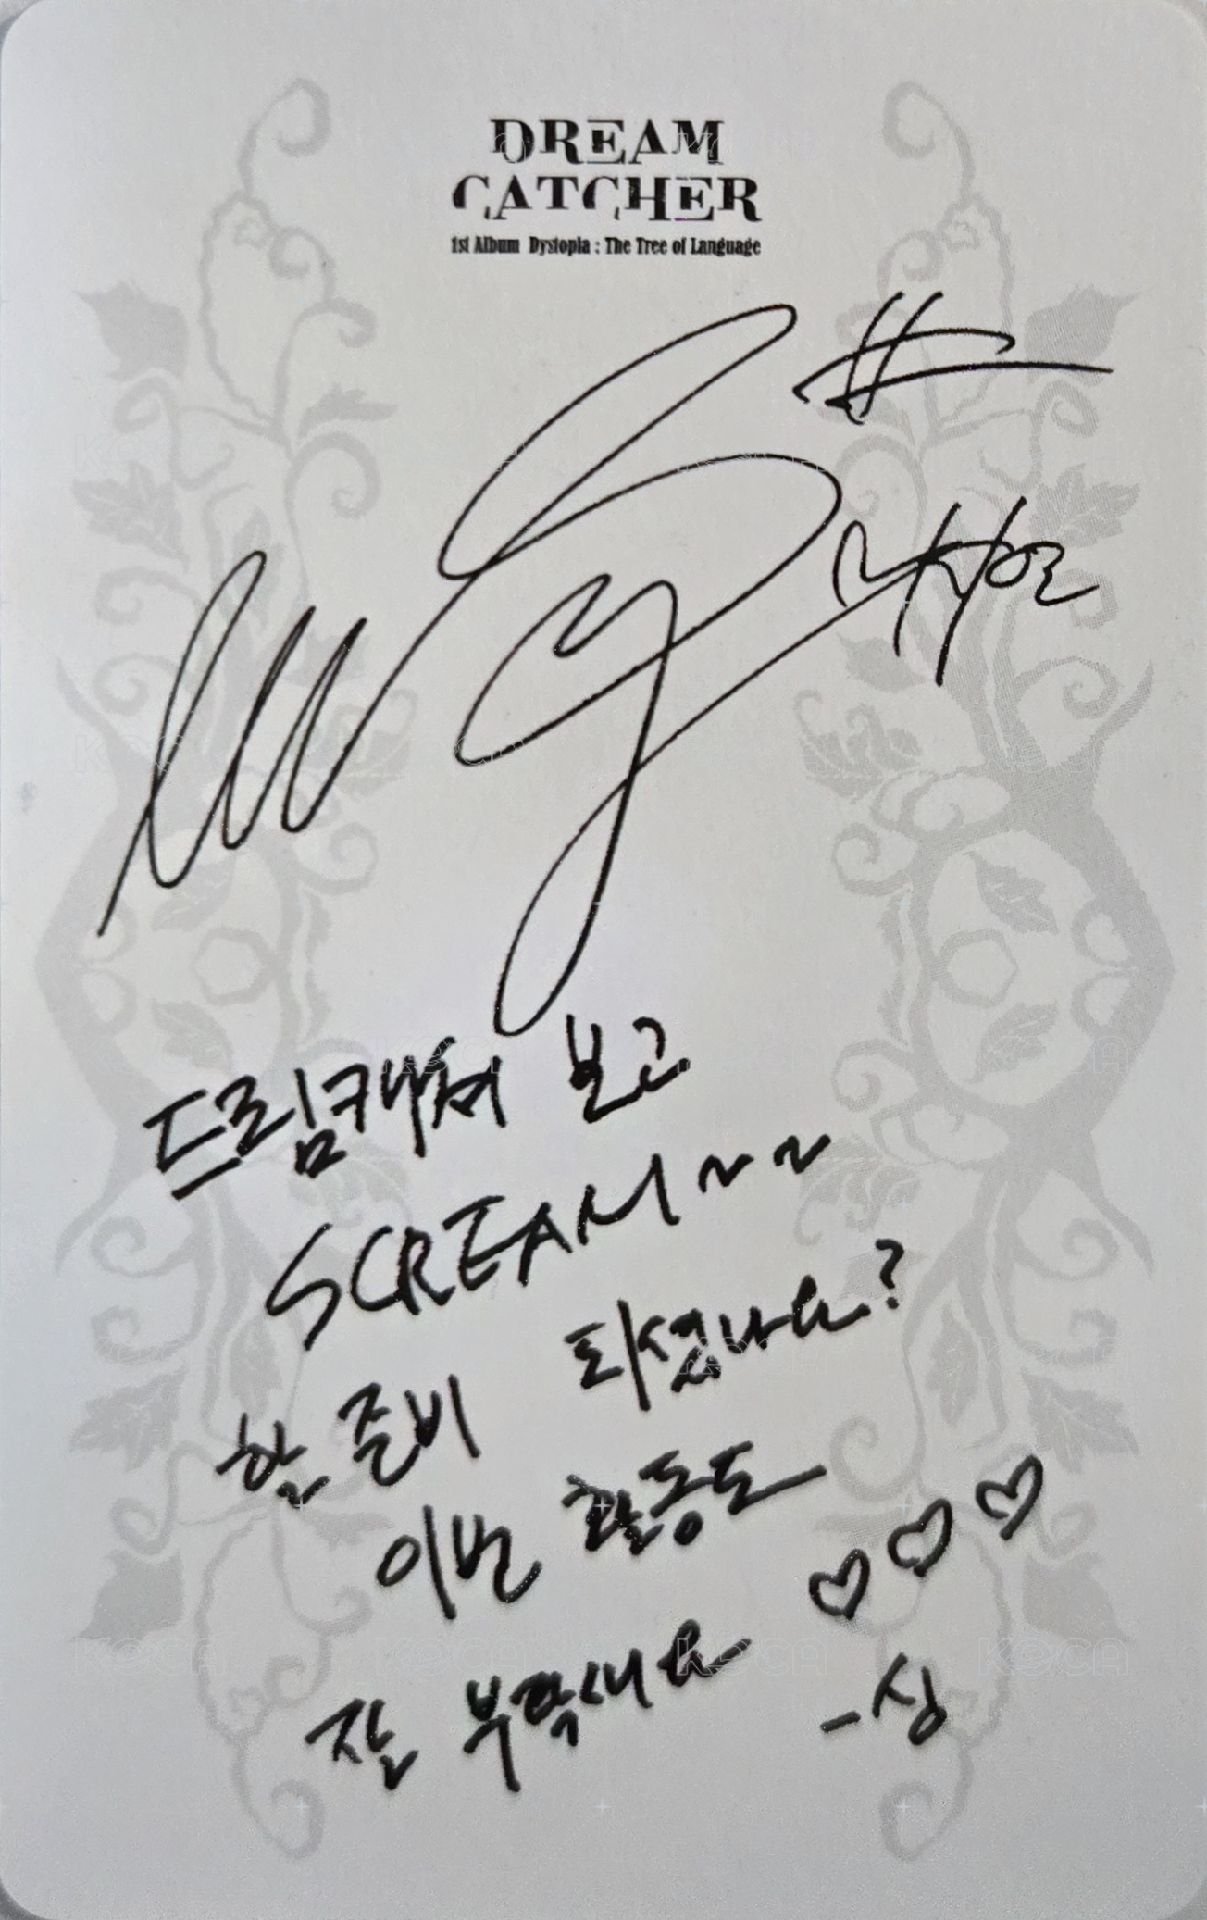 DREAM
CATCHER
1st Album Dystopia : The Tree of Language
드림캐쳐 보고
SCREAM~~
할 준비 되셨나요?
이번 활동도
잘 부탁해요 ♡♡♡
-싱
KOCA